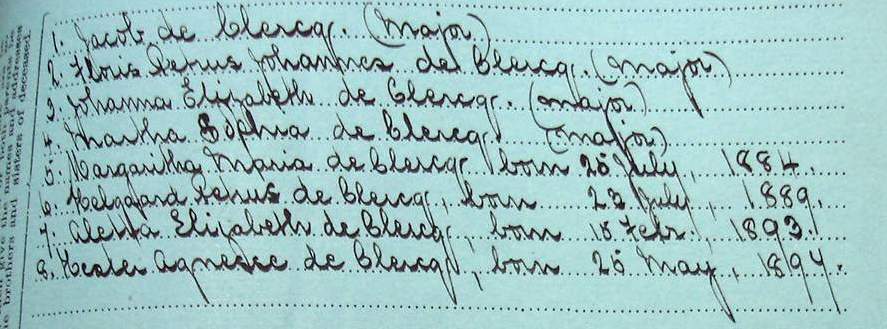 1. Jacob de Clercq. (Major)
2. Floris Petrus Johannes de Clercq. (major)
3. Johanna Elizabeth de Clercq. (major)
4. Martha Sophia de Clercq (major)
5. Margaritha Maria de Clercq, born 26 July, 1884.
6. Petrus de Clercq, born 23 July, 1889.
7. Aletta Elizabeth de Clercq, born 15 Febr. 1893.
8. Hester Agnesce de Clercq, born 26 May, 1894.
names and addresses
brothers and sisters of deceased.